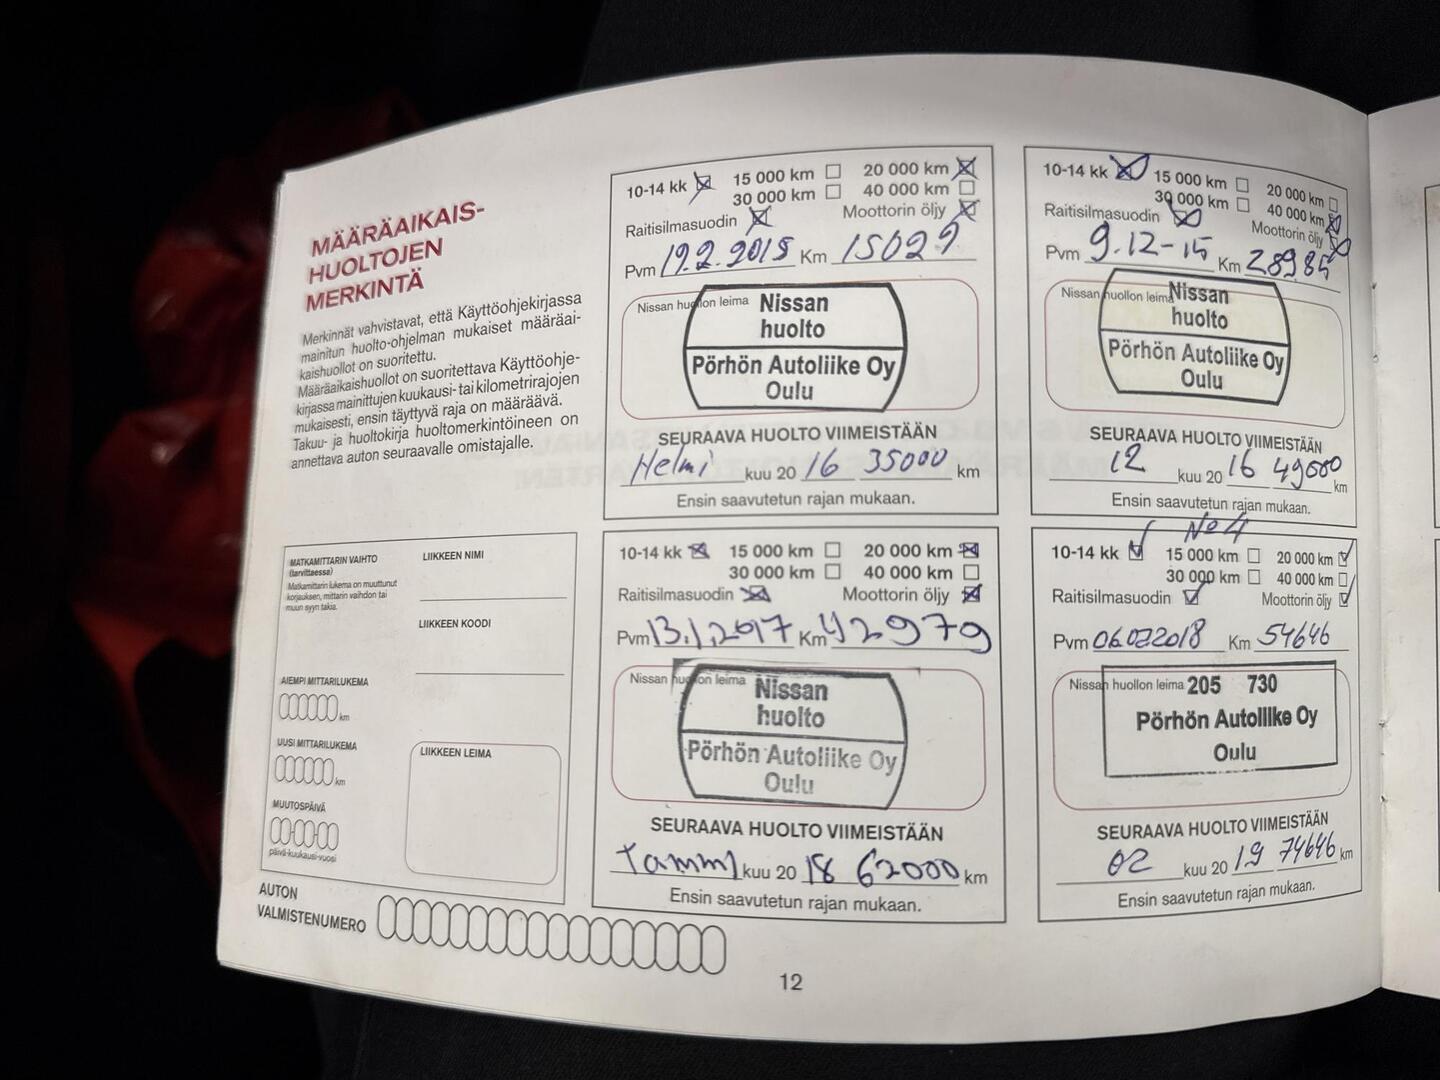 MÄÄRÄAIKAIS-
HUOLTOJEN
MERKINTÄ
Merkinnät vahvistavat, että Käyttöohjekirjassa
mainitun huolto-ohjelman mukaiset määräai-
kaishuollot on suoritettu.
Määräaikaishuollot on suoritettava Käyttöohje-
kirjassa mainittujen kuukausi- tai kilometrirajojen
mukaisesti, ensin täyttyvä raja on määräävä.
Takuu- ja huoltokirja huoltomerkintöineen on
annettava auton seuraavalle omistajalle.
MATKAMITTARIN VAIHTO
(tarvittaessa)
Matkamittarin lukema on muuttunut
korjauksen, mittarin vaihdon tai
muun syyn takia.
AIEMPI MITTARILUKEMA
km
UUSI MITTARILUKEMA
km
MUUTOSPÄIVÄ
päivä-kuukausi-vuosi
LIIKKEEN NIMI
LIIKKEEN KOODI
LIIKKEEN LEIMA
AUTON
VALMISTENUMERO
10-14 kk 15 000 km 20 000 km
30 000 km 40 000 km
Raitisilmasuodin Moottorin öljy
Pvm 19.2.2015 Km 15029
Nissan huollon leima
Nissan
huolto
Pörhön Autoliike Oy
Oulu
SEURAAVA HUOLTO VIIMEISTÄÄN
Helmi kuu 20 16 35000 km
Ensin saavutetun rajan mukaan.
10-14 kk 15 000 km 20 000 km
30 000 km 40 000 km
Raitisilmasuodin Moottorin öljy
Pvm 9.12-15 Km 28985
Nissan huollon leima
Nissan
huolto
Pörhön Autoliike Oy
Oulu
SEURAAVA HUOLTO VIIMEISTÄÄN
12 kuu 20 16 49000 km
Ensin saavutetun rajan mukaan.
10-14 kk 15 000 km 20 000 km
30 000 km 40 000 km
Raitisilmasuodin Moottorin öljy
Pvm 13.1.2017 Km 42979
Nissan huollon leima
Nissan
huolto
Pörhön Autoliike Oy
Oulu
SEURAAVA HUOLTO VIIMEISTÄÄN
Tammi kuu 20 18 62000 km
Ensin saavutetun rajan mukaan.
No 4
10-14 kk 15 000 km 20 000 km
30 000 km 40 000 km
Raitisilmasuodin Moottorin öljy
Pvm 06.02.2018 Km 54646
Nissan huollon leima
205 730
Pörhön Autoliike Oy
Oulu
SEURAAVA HUOLTO VIIMEISTÄÄN
02 kuu 20 19 74646 km
Ensin saavutetun rajan mukaan.
12